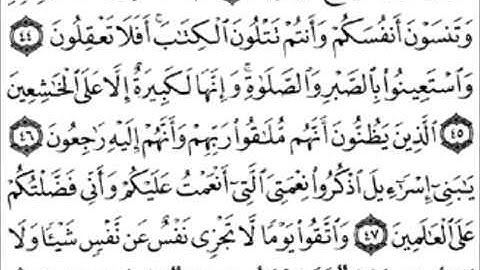 وَتَنسَوْنَ أَنفُسَكُمْ وَأَنتُمْ تَتْلُونَ الْكِتَٰبَ ۚ أَفَلَا تَعْقِلُونَ ٤٤
وَاسْتَعِينُوا بِالصَّبْرِ وَالصَّلَوٰةِ ۚ وَإِنَّهَا لَكَبِيرَةٌ إِلَّا عَلَى الْخَٰشِعِينَ
٤٥ الَّذِينَ يَظُنُّونَ أَنَّهُم مُّلَٰقُوا رَبِّهِمْ وَأَنَّهُمْ إِلَيْهِ رَٰجِعُونَ ٤٦
يَٰبَنِىٓ إِسْرَٰٓءِيلَ اذْكُرُوا نِعْمَتِىَ الَّتِىٓ أَنْعَمْتُ عَلَيْكُمْ وَأَنِّى فَضَّلْتُكُمْ
عَلَى الْعَٰلَمِينَ ٤٧ وَاتَّقُوا يَوْمًا لَّا تَجْزِى نَفْسٌ عَن نَّفْسٍ شَيْـًٔا وَلَا